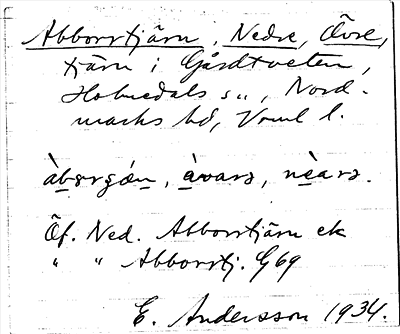 Abborrtjärn, Nedre, Övre,
tjärn i Gårdtveten,
Holmedals sn, Nord-
marks hd, Vrml l.
àbərʒǿn, ø̀vars, nèars.
Öf. Ned. Abborrtjärn ek
" " Abborrtj. G 69
E. Andersson 1934.